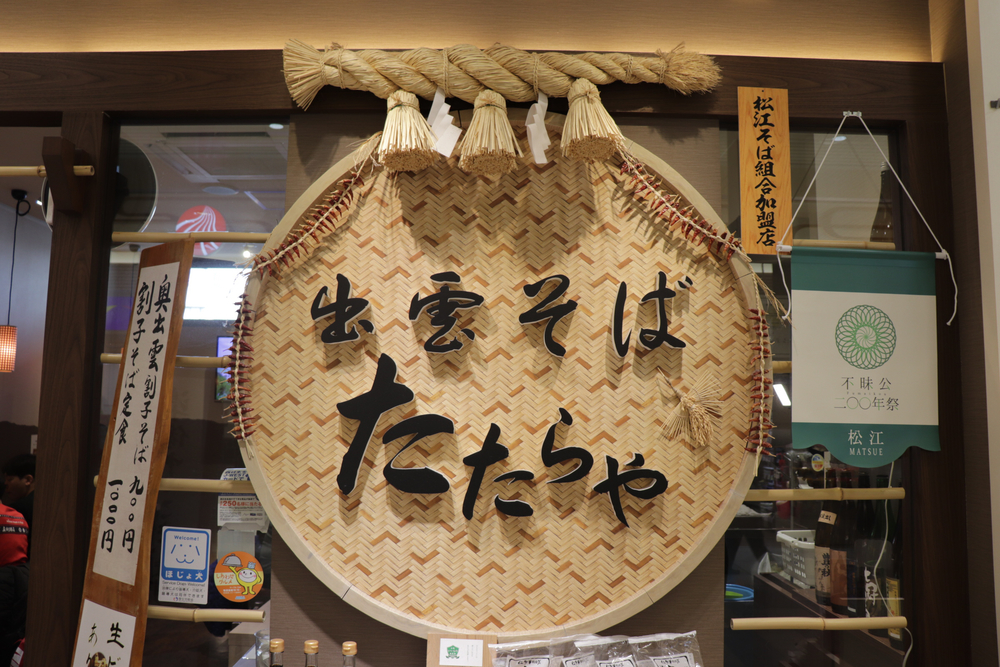 出雲そば
たたらや
松江そば組合加盟店
奥出雲割子そば 九〇〇円
割子そば定食 一、〇〇〇円
生そ
あり
不昧公
二〇〇年祭
松江
MATSUE
Welcome!
ほじょ犬